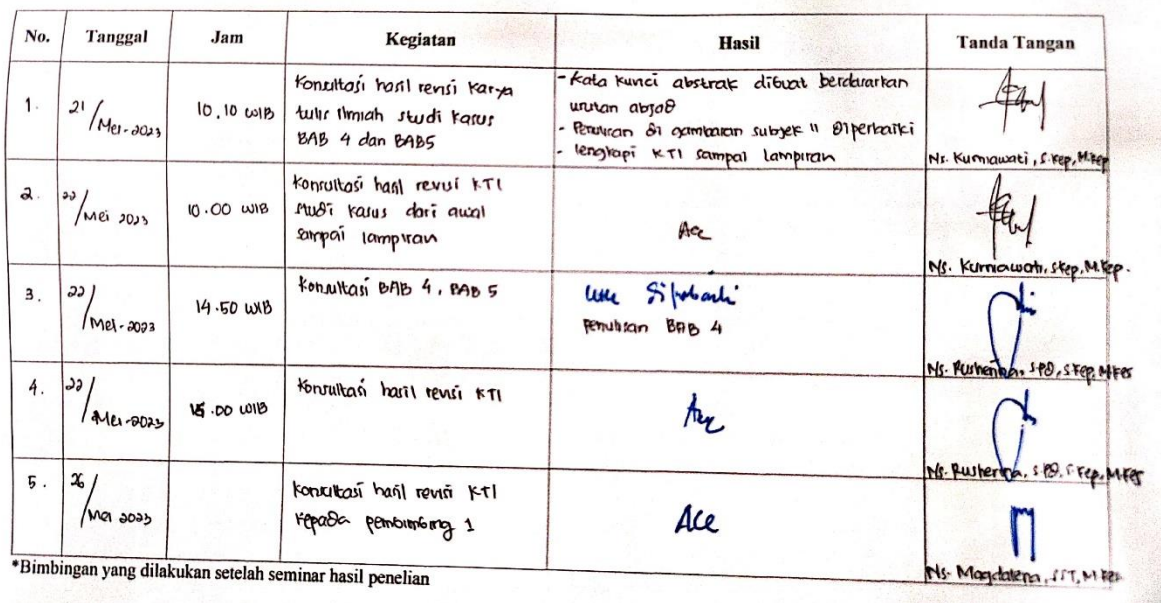 No. Tanggal Jam Kegiatan Hasil Tanda Tangan
1. 21/Mei-2023 10.10 WIB
Konsultasi hasil revisi karya
tulis ilmiah studi kasus
BAB 4 dan BAB5
- Kata kunci abstrak dibuat berdasarkan
urutan abjad
- Penulisan di gambaran subjek " diperbaiki
- lengkapi KTI sampai lampiran
Ns. Kurniawati, S.Kep, M.Kep
2. 22/Mei 2023 10.00 WIB
Konsultasi hasil revisi KTI
studi kasus dari awal
sampai lampiran
Acc
Ns. Kurniawati, Skep, M.Kep.
3. 22/Mei-2023 14.50 WIB
Konsultasi BAB 4, BAB 5
penulisan BAB 4
Ns. Rusherina, S.Pd, S.Kep, M.Kes
4. 22/Mei-2023 15.00 WIB
Konsultasi hasil revisi KTI
Acc
Ns. Rusherina, S.Pd, S.Kep, M.Kes
5. 26/Mei 2023
Konsultasi hasil revisi KTI
kepada pembimbing 1
Acc
Ns. Magdalena, SST, M.Kes
*Bimbingan yang dilakukan setelah seminar hasil penelian